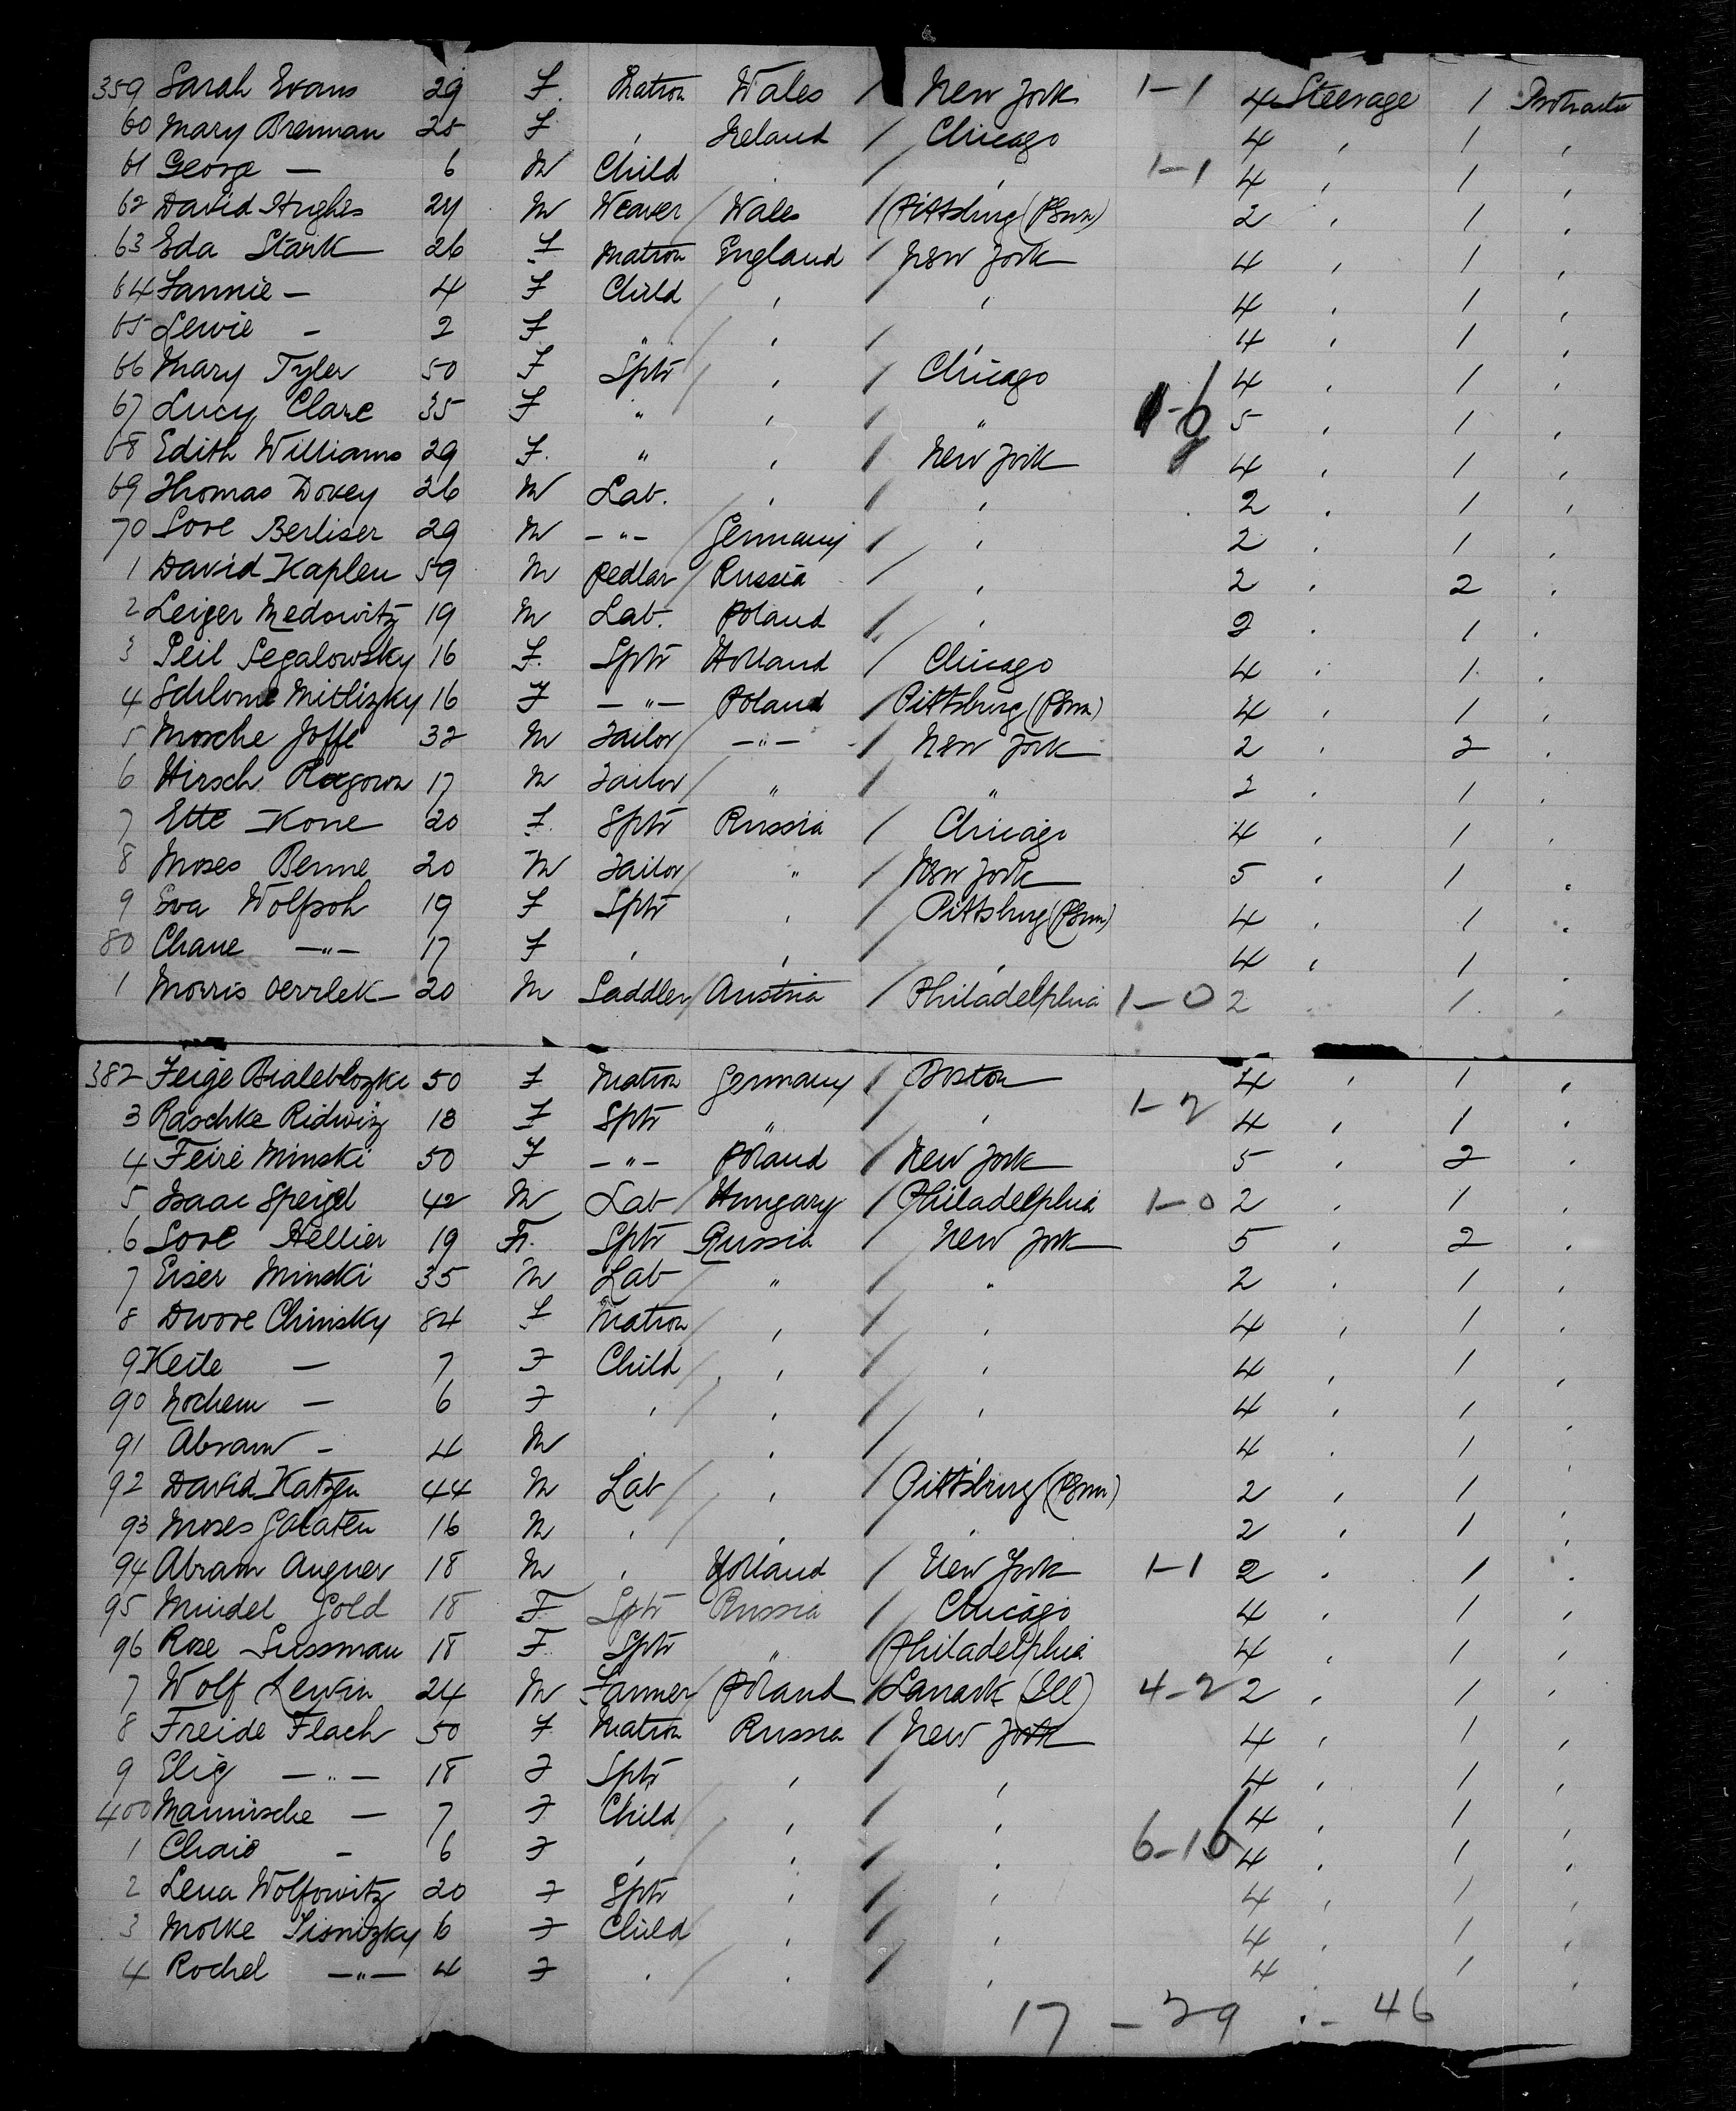 359 Sarah Evans 29 F. Matron Wales / New York 1-1 4 Steerage 1 Protracted
60 Mary Brennan 25 F , Ireland / Chicago 4 , 1 ,
61 George — 6 M Child , / , 1-1 4 , 1 ,
62 David Hughes 24 M Weaver / Wales / Pittsburg (Penn) 2 , 1 ,
63 Eda Stark 26 F Matron England / New York 4 , 1 ,
64 Fannie — 4 F Child / , / , 4 , 1 ,
65 Lewie — 2 F " / , / , 4 , 1 ,
66 Mary Tyler 50 F Sptr / , / Chicago 4 , 1 ,
67 Lucy Clare 35 F " , / " 1-6 5 , 1 ,
68 Edith Williams 29 F. " , / New York 4 , 1 ,
69 Thomas Dovey 26 M Lab. , / , 2 , 1 ,
70 Sore Berliser 29 M — " — Germany / , 2 , 1 ,
1 David Kaplen 59 M Pedlar / Russia / , 2 , 2 ,
2 Leiger Medowitz 19 M Lab. Poland / , 2 , 1 ,
3 Peil Segalowsky 16 F. Sptr Holland / Chicago 4 , 1 ,
4 Schlome Mitlizky 16 F — " — Poland / Pittsburg (Penn) 4 , 1 ,
5 Mosche Joffe 32 M Tailor / — " — / New York 2 , 2 ,
6 Hirsch Ragown 17 M Tailor / " / " 2 , 1 ,
7 Ette Kone 20 F. Sptr Russia / Chicago 4 , 1 ,
8 Moses Benne 20 M Tailor / " / New York 5 , 1 ,
9 Eva Wolfsoh 19 F Sptr , / Pittsburg (Penn) 4 , 1 ,
80 Chane — " — 17 F , , / , 4 , 1 ,
1 Morris Verrlek 20 M Saddler / Austria / Philadelphia 1-0 2 , 1 ,
382 Feige Bialeblozki 50 F Matron Germany / Boston 4 , 1 ,
3 Raschke Ridwiz 18 F Sptr " / , 1-2 4 , 1 ,
4 Feire Minski 50 F — " — Poland / New York 5 , 2 ,
5 Isaac Speigel 42 M Lab / Hungary / Philadelphia 1-0 2 , 1 ,
6 Sore Hellier 19 F. Sptr Russia / New York 5 , 2 ,
7 Eiser Minski 35 M Lab / " / " 2 , 1 ,
8 Dwore Chinsky 84 F Matron / , / , 4 , 1 ,
9 Keile — 7 F Child / , / , 4 , 1 ,
90 Nochem — 6 F , / , / , 4 , 1 ,
91 Abram — 4 M , , / 4 , 1 ,
92 David Katzen 44 M Lab / , / Pittsburg (Penn) 2 , 1 ,
93 Moses Galaten 16 M , / , / , 2 , 1 ,
94 Abram Augner 18 M , Holland / New York 1-1 2 , 1 ,
95 Mindel Gold 18 F. Sptr Russia / Chicago 4 , 1 ,
96 Rose Sussman 18 F. Sptr " / Philadelphia 4 , 1 ,
7 Wolf Lewin 24 M Farmer / Poland / Lanark (Ill) 4-2 2 , 1 ,
8 Freide Flach 50 F. Matron Russia / New York 4 , 1 ,
9 Elig — " — 18 F Sptr , / , 4 , 1 ,
400 Mannische — 7 F Child / , / , 4 , 1 ,
1 Chaie — 6 F , / , / , 6-16 4 , 1 ,
2 Lena Wolfowitz 20 F Sptr , / , 4 , 1 ,
3 Molke Sisnizky 6 F Child / , / , 4 , 1 ,
4 Rochel — " — 4 F , / , / , 4 1 ,
17 — 29 :- 46